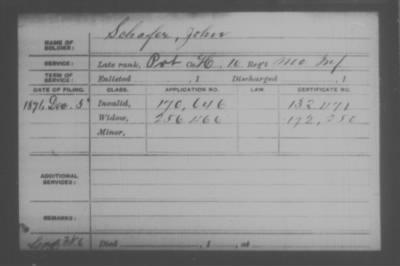 NAME OF SOLDIER: Schafer, John
SERVICE: Late rank, Pvt Co. H, 16 Reg't Mo Inf
TERM OF SERVICE: Enlisted , 1 Discharged , 1
DATE OF FILING. CLASS. APPLICATION NO. LAW. CERTIFICATE NO.
1871, Dec. 5 Invalid, 170,646 132,1171
Widow, 256,1166 172,250
Minor,
ADDITIONAL SERVICES:
REMARKS:
Died , 1 , at